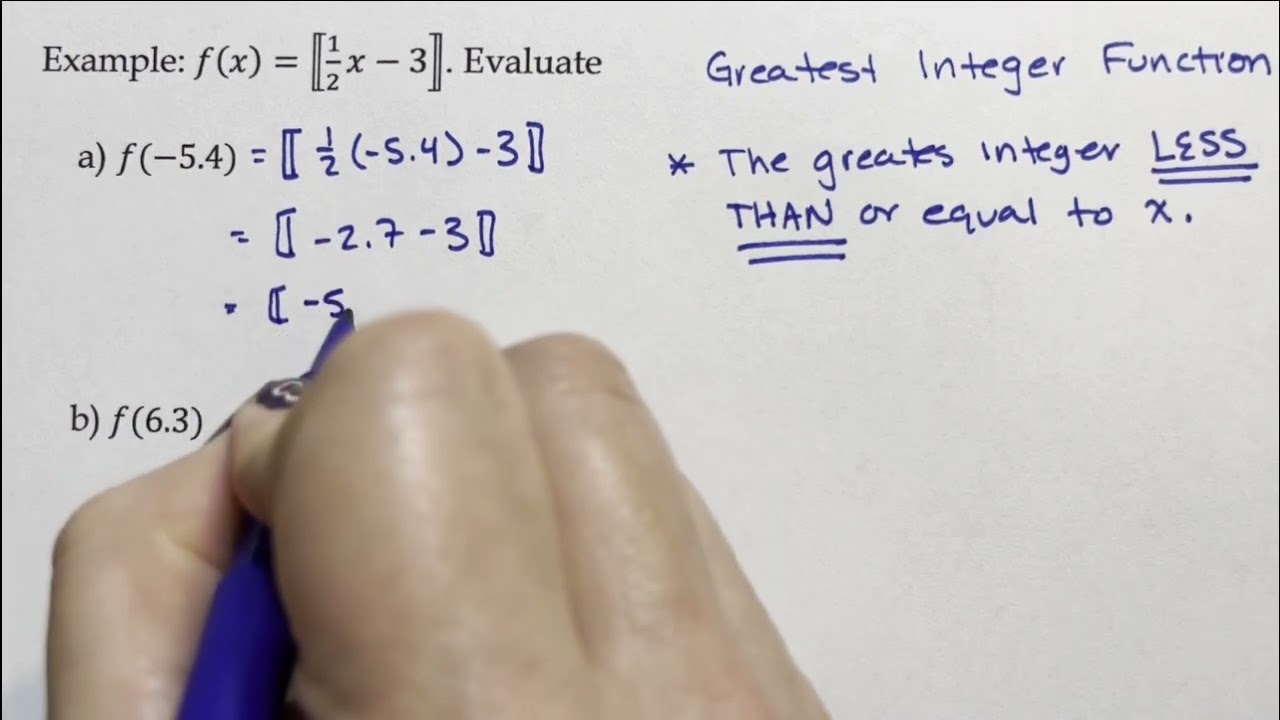 Example: f(x) = ⟦½x − 3⟧. Evaluate
Greatest Integer Function
a) f(−5.4) = ⟦ ½ (-5.4) - 3⟧
= ⟦ -2.7 - 3⟧
= ⟦ -5
* The greates integer LESS
THAN or equal to x.
b) f(6.3)